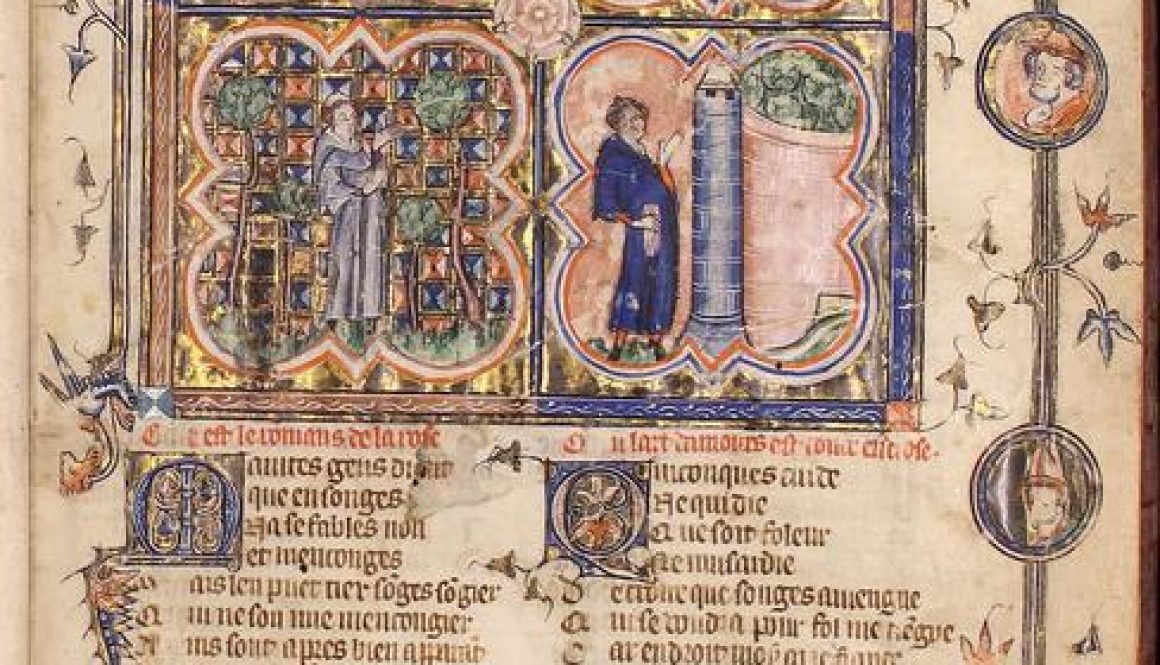 C est le romans de la rose
Maintes gens dient
que en songes
Na se fables non
et menconges
Mais len puet tier sõges sõgier
Qui ne son mie mencongier
Ains sont apres bien apparãt
O u lart damours est toute enclose.
Quiconques cuide
Ne qui die
Q ue soit foleur
Ne musardie
De croire que songes auiengne
Qui se voudra pour fol me tiẽgne
Car endroit moy ai ie fiance